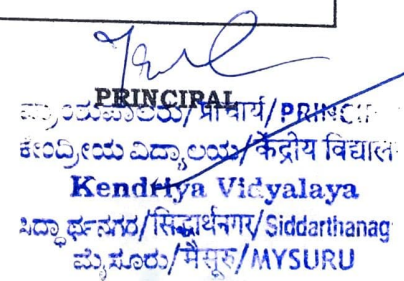 PRINCIPAL
ಪ್ರಾಂಶುಪಾಲರು/प्राचार्य/PRINCI
ಕೇಂದ್ರೀಯ ವಿದ್ಯಾಲಯ/केंद्रीय विद्याल
Kendriya Vidyalaya
ಸಿದ್ದಾರ್ಥನಗರ/सिद्धार्थनगर/Siddarthanag
ಮೈಸೂರು/मैसूरु/MYSURU